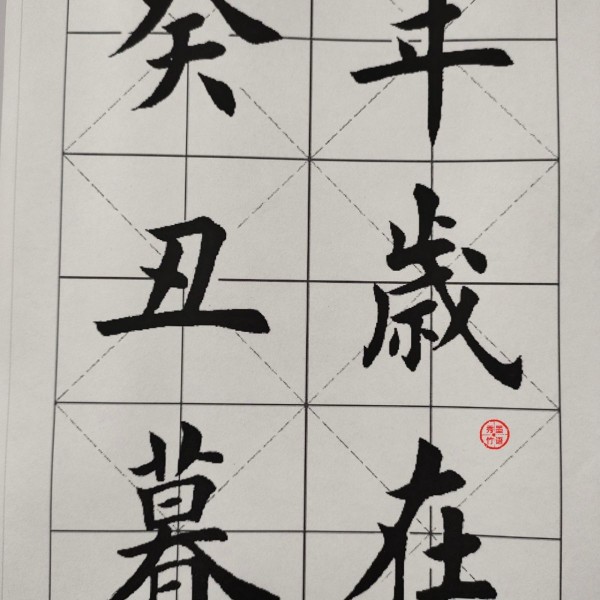 年歲在
癸丑暮